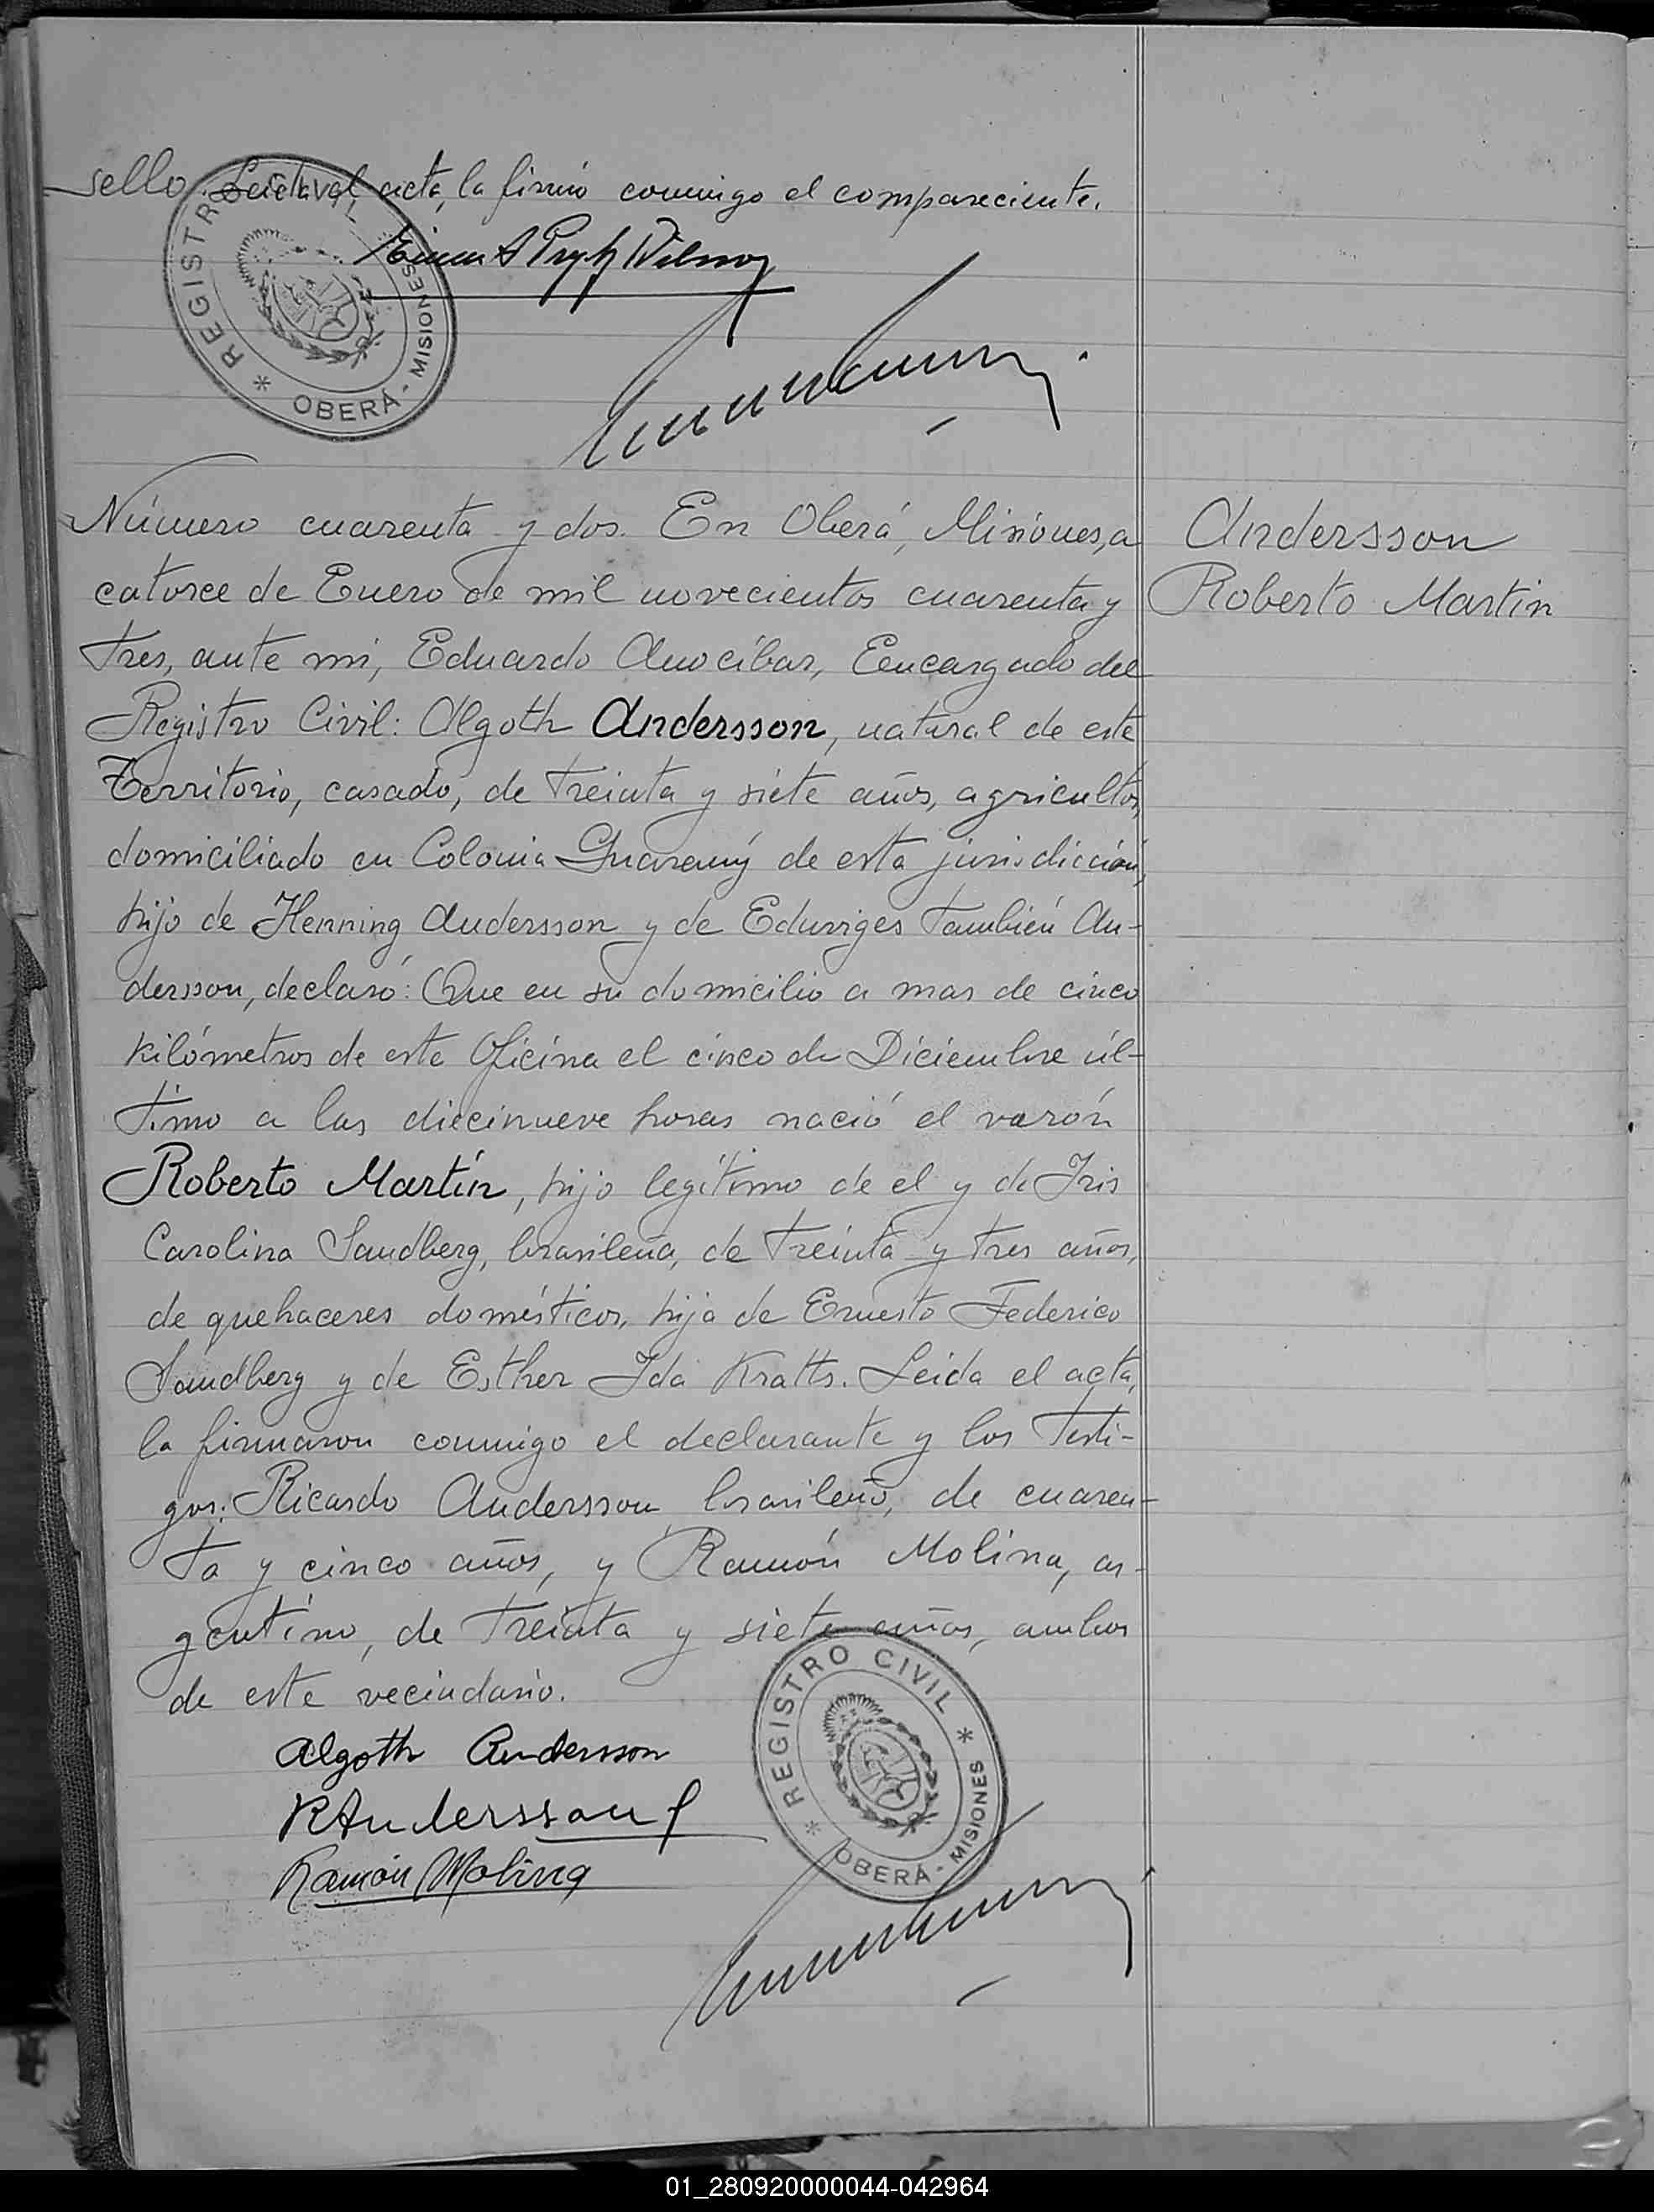 sello. Leida el acta, la firmó conmigo el compareciente.
REGISTRO CIVIL
OBERÁ - MISIONES
Número cuarenta y dos. En Oberá, Misiones, a
Andersson
catorce de Enero de mil novecientos cuarenta y
Roberto Martin
tres, ante mi, Eduardo Anocíbar, Eencargado del
Registro Civil: Algoth Andersson, natural de este
Territorio, casado, de treinta y siete años, agricultor,
domiciliado en Colonia Guaraný de esta jurisdicción,
hijo de Henning Andersson y de Eduviges también An-
dersson, declaró: Que en su domicilio a mas de cinco
kilómetros de este Oficina el cinco de Diciembre úl-
timo a las diecinueve horas nació el varón
Roberto Martín, hijo legítimo de el y de Iris
Carolina Sandberg, brasileña, de treinta y tres años,
de quehaceres domésticos, hija de Ernesto Federico
Sandberg y de Esther Ida Kratts. Leida el acta,
la firmaron conmigo el declarante y los testi-
gos: Ricardo Andersson, brasileño, de cuaren-
ta y cinco años, y Ramón Molina, ar-
gentino, de treinta y siete años, ambos
de este vecindario.
REGISTRO CIVIL
OBERÁ - MISIONES
Algoth Andersson
RAndersson
Ramón Molina
01_280920000044-042964